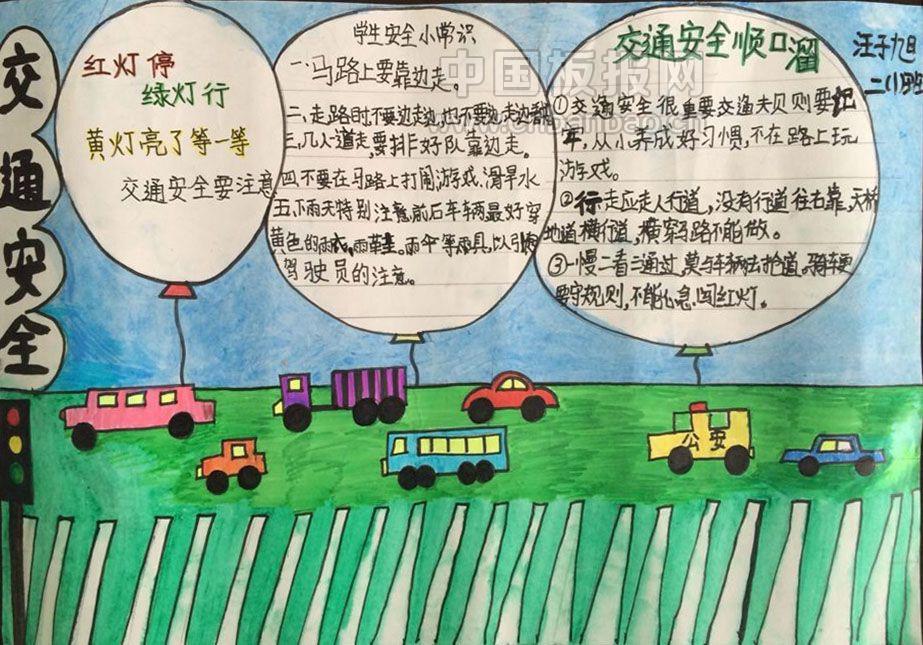 交通安全
红灯停
绿灯行
黄灯亮了等一等
交通安全要注意
学生安全小常识
一、马路上要靠边走。
二、走路时不要边走边,也不要边走边翻
三、几人道走,要排好队靠边走。
四不要在马路上打闹游戏、滑旱冰
五、下雨天特别注意前后车辆最好穿
黄色的雨衣、雨鞋、雨伞等雨具,以引起
驾驶员的注意。
交通安全顺口溜
汪子旭
二(八)班
①交通安全很重要交通规则要记
牢,从小养成好习惯,不在路上玩
游戏。
②行走应走人行道,没有行道往右靠,天桥
地道横行道,横穿马路不能做。
③一慢二看三通过,莫与车辆去抢道。骑车更
要守规则,不能心急闯红灯。
公安
中国板报网
www.cnbanbao.cn